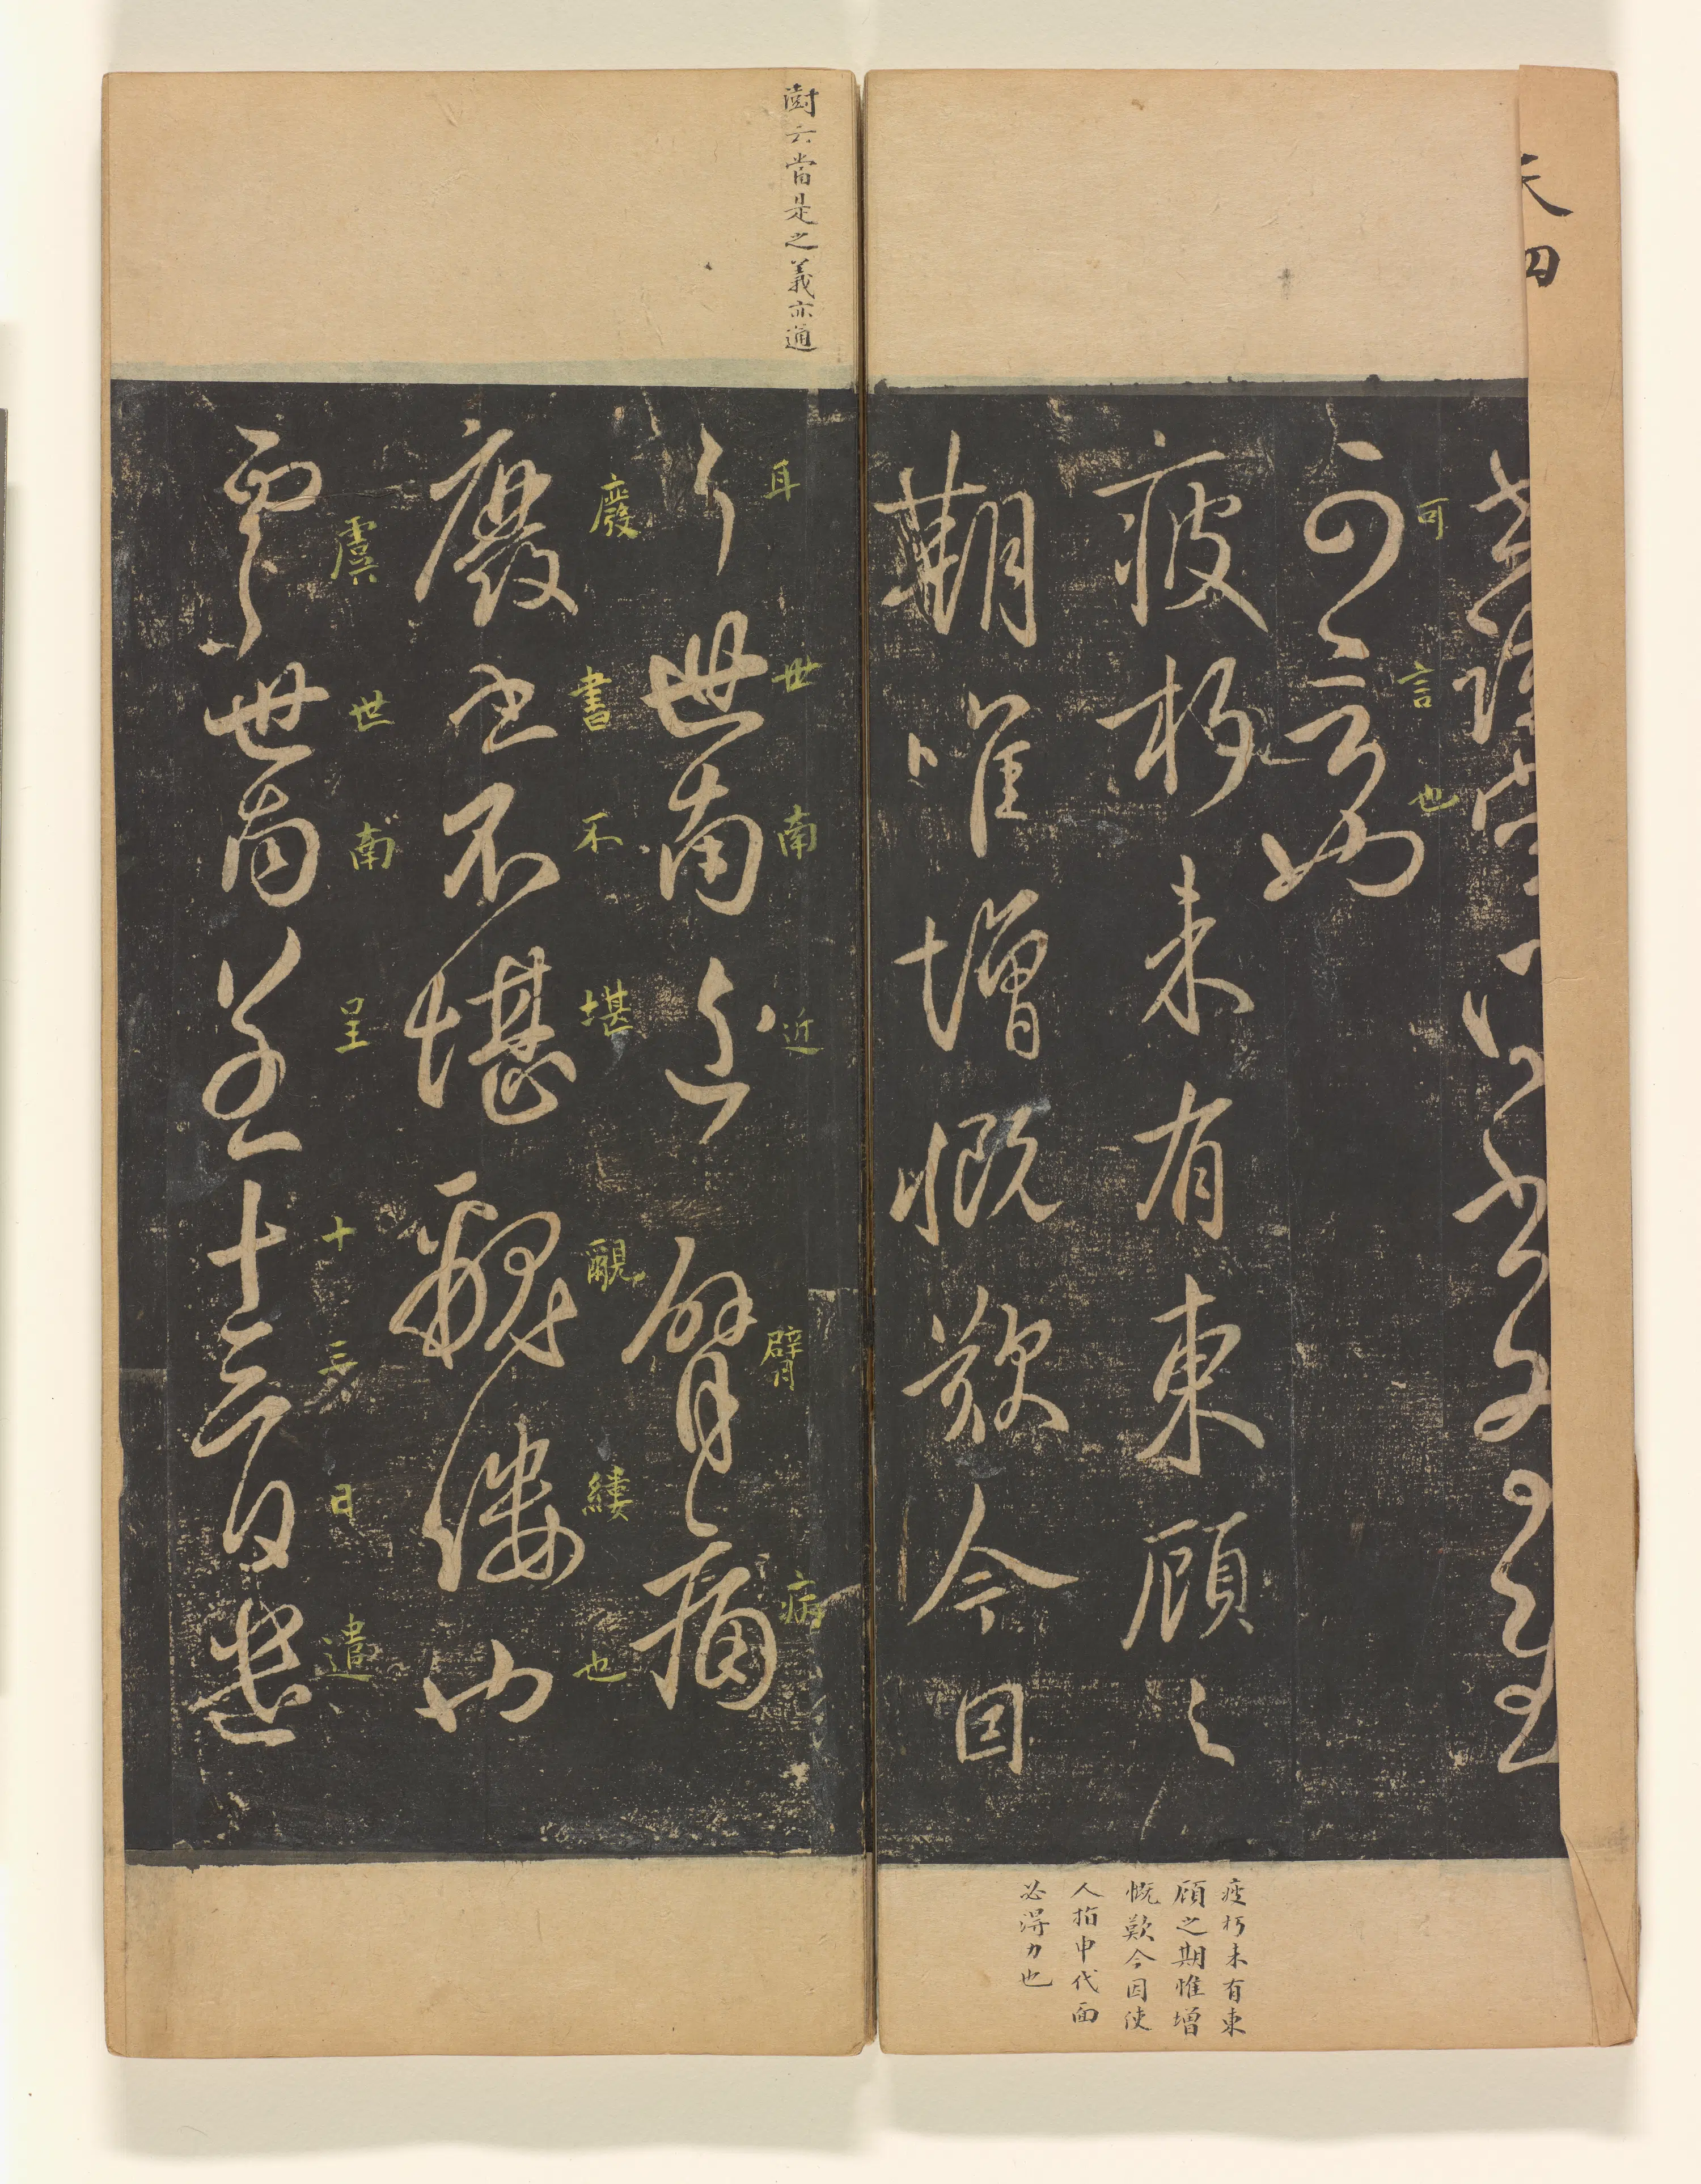 可言也
可言也
疲朽未有東顧之
期唯增慨歎今因
疲朽未有東
顧之期惟增
慨歎今因使
人指申代面
必得力也
澍云當是之義亦通
耳世南近臂病
耳世南近臂痛
廢書不堪覼縷也
廢書不堪覼縷也
虞世南呈十三日遣
虞世南呈十三日遣